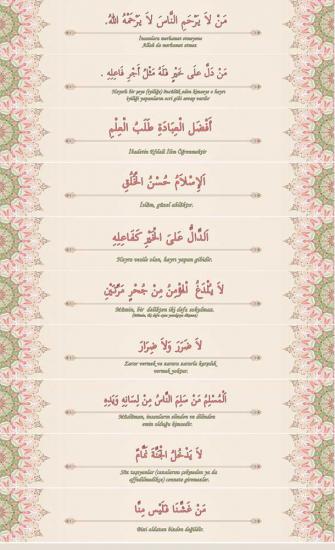 مَنْ لاَ يَرْحَمِ النَّاسَ لاَ يَرْحَمْهُ اللهُ.
İnsanlara merhamet etmeyene
Allah da merhamet etmez
مَنْ دَلَّ عَلَى خَيْرٍ فَلَهُ مِثْلُ أَجْرِ فَاعِلِهِ.
Hayırlı bir şeye (iyiliğe) öncülük eden kimseye o hayrı
iyiliği yapanların ecri gibi sevap vardır
أَفْضَلُ الْعِبَادَةِ طَلَبُ الْعِلْمِ
İbadetin Efdali İlim Öğrenmektir
اَلإِسْلاَمُ حُسْنُ الْخُلُقِ
İslâm, güzel ahlâktır.
اَلدَّالُّ عَلَى الْخَيْرِ كَفَاعِلِهِ
Hayra vesile olan, hayrı yapan gibidir.
لاَ يُلْدَغُ الْمُؤْمِنُ مِنْ جُحْرٍ مَرَّتَيْنِ
Mümin, bir delikten iki defa sokulmaz.
لاَ ضَرَرَ وَلاَ ضِرَارَ
Zarar vermek ve zarara zararla karşılık
vermek yoktur.
اَلْمُسْلِمُ مَنْ سَلِمَ النَّاسُ مِنْ لِسَانِهِ وَيَدِهِ
Müslüman, insanların elinden ve dilinden
emin olduğu kimsedir.
لاَ يَدْخُلُ الْجَنَّةَ نَمَّامٌ
Söz taşıyanlar (cezalarını çekmeden ya da
affedilmedikçe) cennete giremezler.
مَنْ غَشَّنَا فَلَيْسَ مِنَّا
Bizi aldatan bizden değildir.